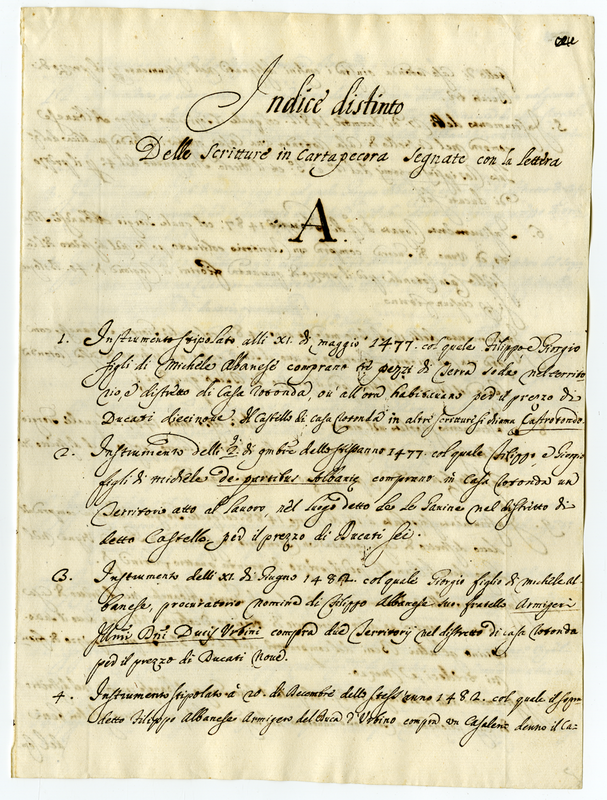 Indice distinto
Delle scritture in cartapecora segnate con la lettera
A.
1. Instrumento stipolato alli XI. di maggio 1477. col quale Filippo e Giorgio
figli di Michele Albanese comprano tre pezzi di terra soda nel territo-
rio, e distretto di Casa rotonda, ou' all' ora habitauano ped il prezzo di
Ducati diecinoue. Il Castello di casa rotonda in altre scritture si chiama Castrotondo.
2. Instrumento delli 2. di 9mbre dello stess'anno 1477. col quale Filippo, e Giorgio
figli di michele de partibus Albanie comprano in Casa rotonda un
Territorio atto al lauoro nel luogo detto le Panine nel distretto di
detto Castello, ped il prezzo di Ducati sei.
3. Instrumento delli XI. di Giugno 1482. col quale Giorgio figlio di michele Al
banese, procuratorio nomine di Filippo Albanese suo fratello Armigeri
Illmi Dni Ducis Urbini compra due Territorij nel distretto di casa rotonda
ped il prezzo di Ducati noue.
4. Instrumento stipolato à 20. di Decembre dello stess'anno 1482. col quale il sopra
detto Filippo Albanese Armigero del Duca d'Urbino compra un Casaleno dentro il Ca-